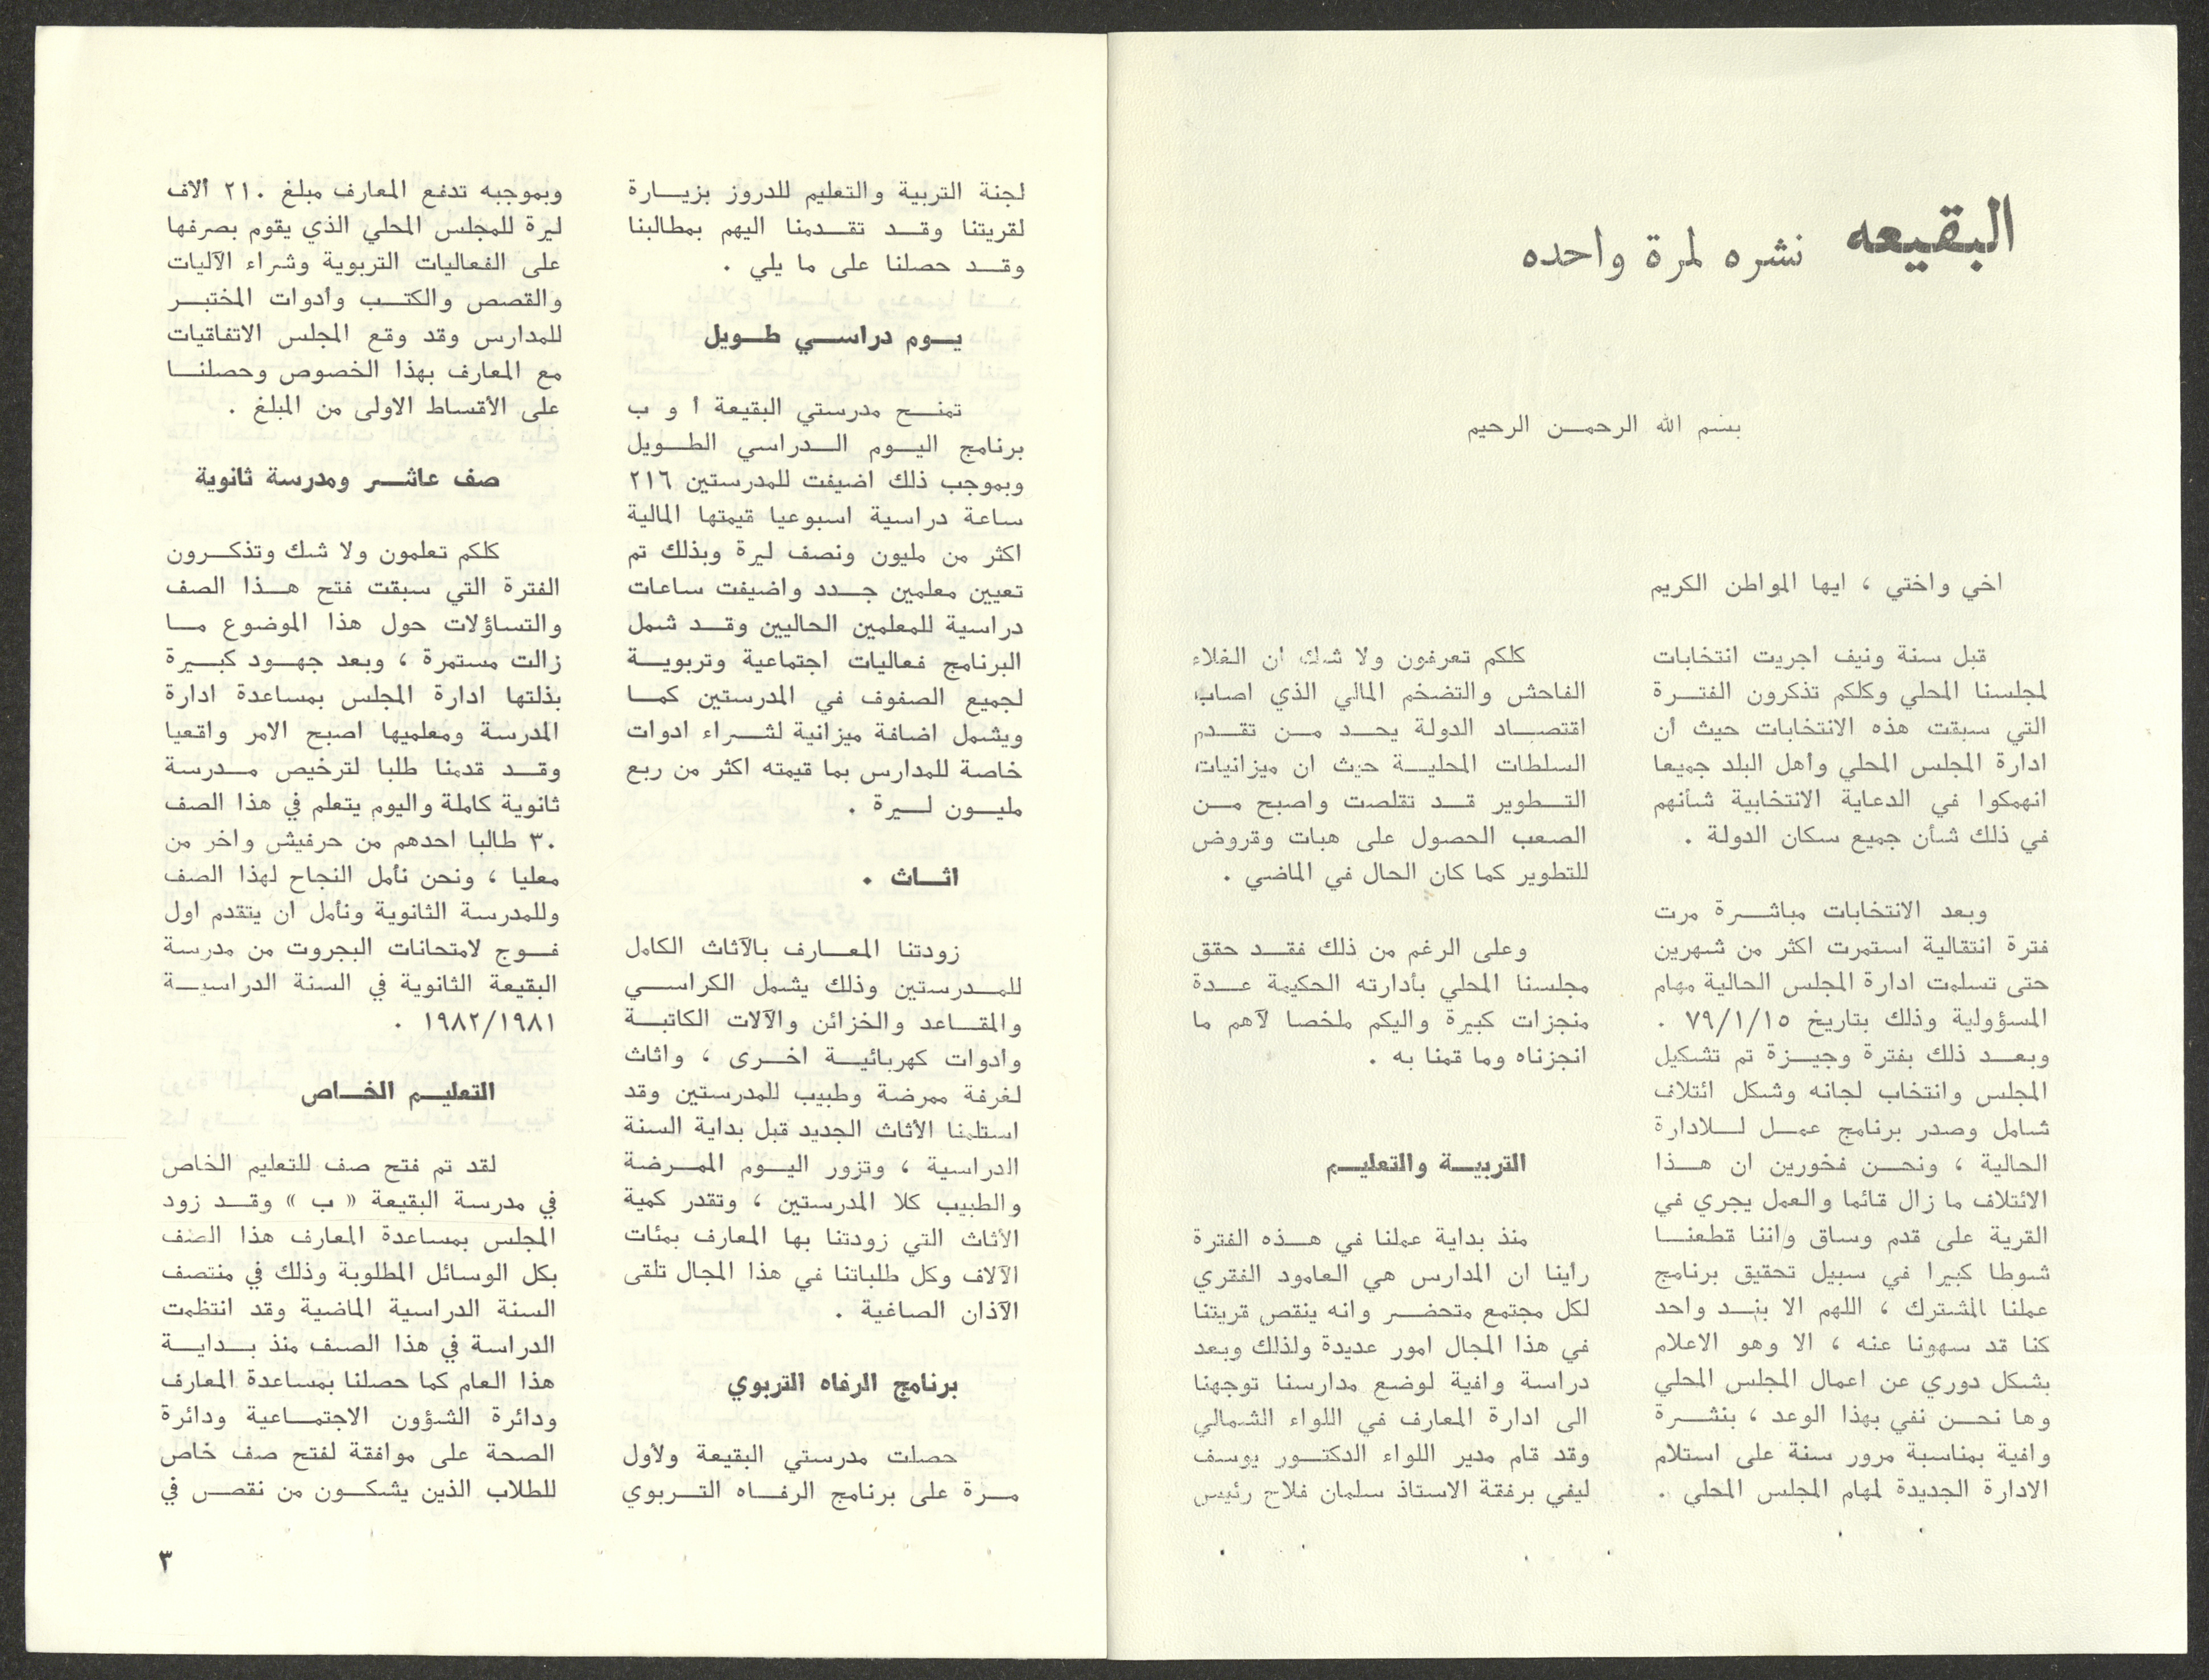 البقيعه نشره لمرة واحده
بسم الله الرحمـن الرحيم
اخي واختي ، ايها المواطن الكريم
قبل سنة ونيف اجريت انتخابات
لمجلسنا المحلي وكلكم تذكرون الفتـرة
التي سبقت هذه الانتخابات حيث أن
ادارة المجلس المحلي وأهل البلد جميعا
انهمكوا في الدعاية الانتخابية شأنهم
في ذلك شأن جميع سكان الدولة .
وبعد الانتخابات مباشـرة مرت
فترة انتقالية استمرت اكثر من شهرين
حتى تسلمت ادارة المجلس الحالية مهام
المسؤولية وذلك بتاريخ ٧٩/١/١٥ .
وبعـد ذلك بفترة وجيـزة تم تشكيل
المجلس وانتخاب لجانه وشكل ائتلاف
شامل وصدر برنامج عمـل لـلادارة
الحالية ، ونحـن فخورين ان هـذا
الائتلاف ما زال قائما والعمل يجري في
القرية على قدم وساق واننا قطعنـا
شوطا كبيرا في سبيل تحقيق برنامج
عملنا المشترك ، اللهم الا بنـد واحد
كنا قد سهونا عنه ، الا وهو الاعلام
بشكل دوري عن اعمال المجلس المحلي
وها نحـن نفي بهذا الوعد ، بنشـرة
وافية بمناسبة مرور سنة على استلام
الادارة الجديدة لمهام المجلس المحلي .
كلكم تعرفون ولا شك ان الغلاء
الفاحش والتضخم المالي الذي اصاب
اقتصـاد الدولة يحـد مـن تقـدم
السلطات المحليـة حيث ان ميزانيات
التـطوير قـد تقلصت واصبح مـن
الصعب الحصول على هبات وقروض
للتطوير كما كان الحال في الماضي .
وعلى الرغم من ذلك فقـد حقق
مجلسنا المحلي بأدارته الحكيمة عـدة
منجزات كبيرة واليكم ملخصا لآهم ما
انجزناه وما قمنا به .
التربيـة والتعليـم
منذ بداية عملنا في هـذه الفترة
رأينا ان المدارس هي العامود الفقري
لكل مجتمع متحضـر وانه ينقص قريتنا
في هذا المجال امور عديدة ولذلك وبعد
دراسة وافية لوضع مدارسنا توجهنا
الى ادارة المعارف في اللواء الشمالي
وقد قام مدير اللواء الدكتـور يوسف
ليفي برفقة الاستاذ سلمان فلاح رئيس
لجنة التربية والتعليم للدروز بزيـارة
لقريتنا وقـد تقـدمنا اليهم بمطالبنا
وقـد حصلنا على ما يلي .
يـوم دراسـي طـويل
تمنـح مدرستي البقيعة أ و ب
برنامج اليـوم الـدراسي الطـويل
وبموجب ذلك اضيفت للمدرستين ٢١٦
ساعة دراسية اسبوعيا قيمتها المالية
اكثر من مليون ونصف ليرة وبذلك تم
تعيين معلمين جـدد واضيفت ساعات
دراسية للمعلمين الحاليين وقـد شمل
البرنامج فعاليات اجتماعية وتربويـة
لجميع الصفوف في المدرستين كمـا
ويشمل اضافة ميزانية لشـراء ادوات
خاصة للمدارس بما قيمته اكثر من ربع
مليـون لـيرة .
اثـاث .
زودتنا المعـارف بالآثاث الكامل
للمـدرستين وذلك يشمل الكراسـي
والمقـاعد والخزائن والآلات الكاتبـة
وادوات كهربائيـة اخـرى ، واثاث
لغرفة ممرضة وطبيب للمدرستين وقد
استلمنا الأثاث الجديد قبل بداية السنة
الدراسية ، وتزور اليـوم الممـرضة
والطبيب كلا المدرستين ، وتقدر كمية
الأثاث التي زودتنا بها المعارف بمئات
الآلاف وكل طلباتنا في هذا المجال تلقى
الآذان الصاغية .
برنامج الرفاه التربوي
حصلت مدرستي البقيعة ولأول
مـرة على برنامج الرفـاه التـربوي
وبموجبه تدفع المعارف مبلغ ٢١٠ ألاف
ليرة للمجلس المحلي الذي يقوم بصرفها
على الفعاليات التربوية وشراء الآليات
والقصص والكتـب وأدوات المختبـر
للمدارس وقد وقع المجلس الاتفاقيات
مع المعارف بهذا الخصوص وحصلنـا
على الأقساط الاولى من المبلغ .
صف عاشـر ومدرسة ثانوية
كلكم تعلمون ولا شك وتذكـرون
الفترة التي سبقت فتح هـذا الصف
والتساؤلات حول هذا الموضوع مـا
زالت مستمرة ، وبعد جهـود كبـيرة
بذلتها ادارة المجلس بمساعدة ادارة
المدرسة ومعلميها اصبح الامر واقعيا
وقـد قدمنا طلبا لترخيص مـدرسة
ثانوية كاملة واليوم يتعلم في هذا الصف
٣٠ طالبا احدهم من حرفيش واخر من
معليا ، ونحن نأمل النجاح لهذا الصف
وللمدرسة الثانوية ونأمل ان يتقدم اول
فـوج لامتحانات البجروت من مدرسة
البقيعة الثانوية في السنة الدراسيـة
١٩٨٢/١٩٨١ .
التعليـم الخـاص
لقد تم فتح صف للتعليم الخاص
في مدرسة البقيعة « ب » وقـد زود
المجلس بمساعدة المعارف هذا الصف
بكل الوسائل المطلوبة وذلك في منتصف
السنة الدراسية الماضية وقد انتظمت
الدراسة في هذا الصف منذ بـدايـة
هذا العام كما حصلنا بمساعدة المعارف
ودائرة الشؤون الاجتمـاعية ودائرة
الصحة على موافقة لفتح صف خاص
للطلاب الذين يشكـون من نقصـ في
٣